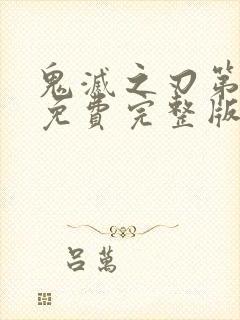 鬼滅之刃第
免費完整版
呂萬